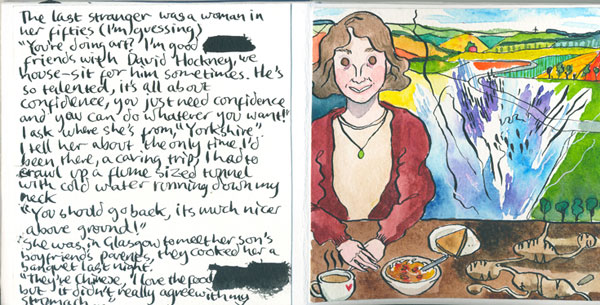 The last stranger was a woman in
her fifties (I'm guessing)
"You're doing art? I'm good
friends with David Hockney, we
house-sit for him sometimes. He's
so talented, it's all about
confidence, you just need confidence
and you can do whatever you want!"
I ask where she's from "Yorkshire"
I tell her about the only time I'd
been there, a caving trip, I had to
crawl up a flume sized tunnel
with cold water running down my
neck
"You should go back, its much nicer
above ground!"
She was in Glasgow to meet her son's
boyfriends parents, they cooked her a
banquet last night.
"They're Chinese, I love the food
but it didn't really agree with my
stomach